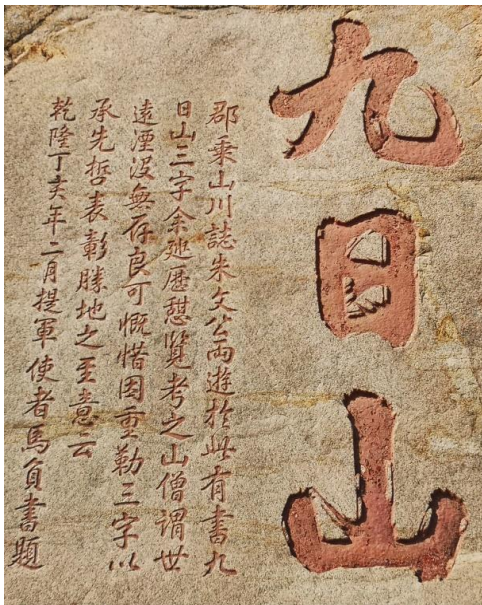 九日山
郡乘山川誌朱文公兩遊於此有書九
日山三字余延歷憩覽考之山僧謂世
遠湮沒無存良可慨惜因重勒三字以
承先哲表彰勝地之至意云
乾隆丁亥年二月提軍使者馬負書題